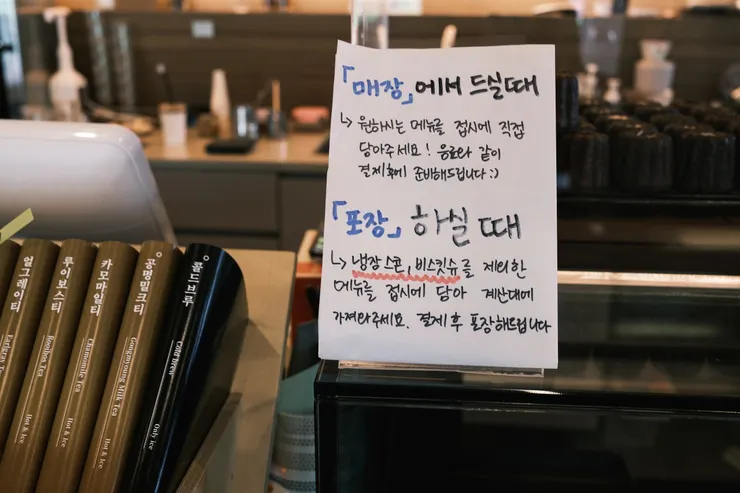 「매장」에서 드실때
↳ 원하시는 메뉴를 접시에 직접
담아주세요! 음료와 같이
결제후에 준비해드립니다:)
「포장」 하실 때
↳ 냉장스콘, 비스킷슈를 제외한
메뉴를 접시에 담아 계산대에
가져와주세요. 결제 후 포장해드립니다
얼그레이티
Earlgray Tea
Hot & Ice
루이보스티
Rooibos Tea
Hot & Ice
카모마일티
Chamomile Tea
Hot & Ice
공명밀크티
Gongmyoung Milk Tea
Hot & Ice
콜드브루
Cold brew
Only ice